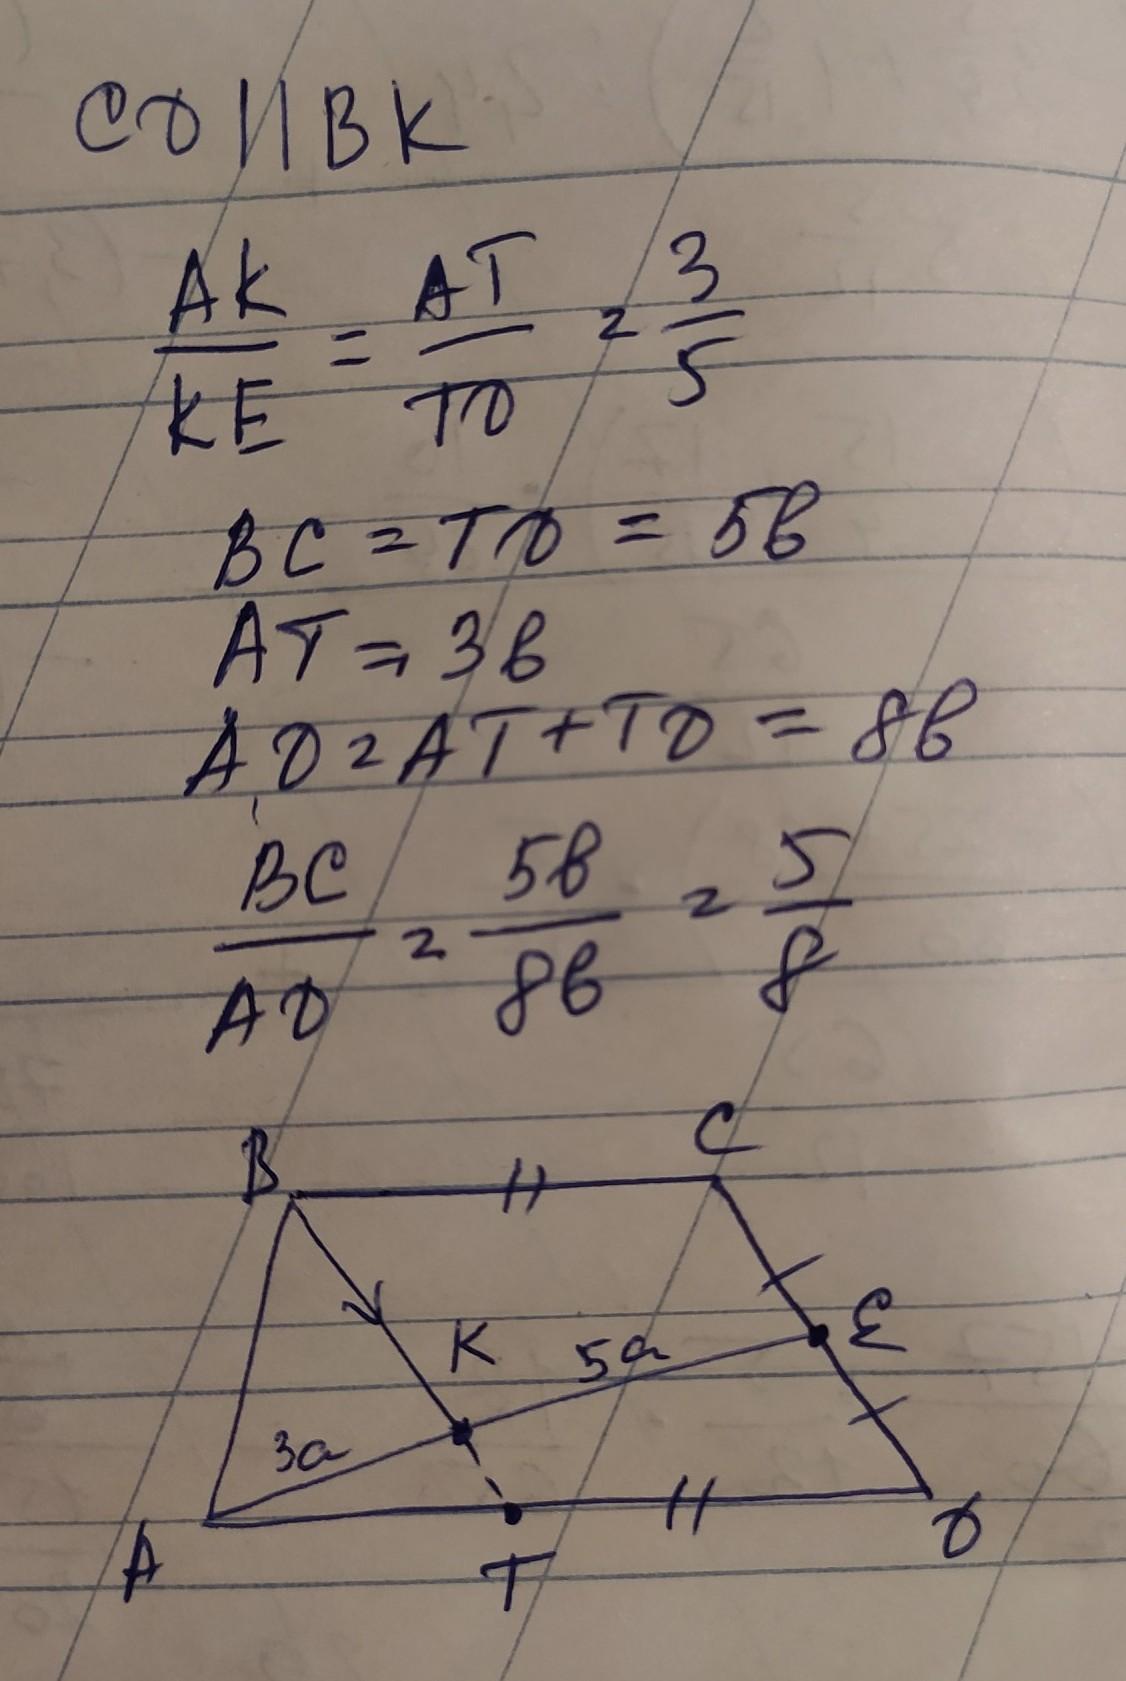 CD || BK
AK/KE = AT/TD = 3/5
BC = TD = 5b
AT = 3b
AD = AT + TD = 8b
BC/AD = 5b/8b = 5/8
B C
K 5a E
3a
A T D